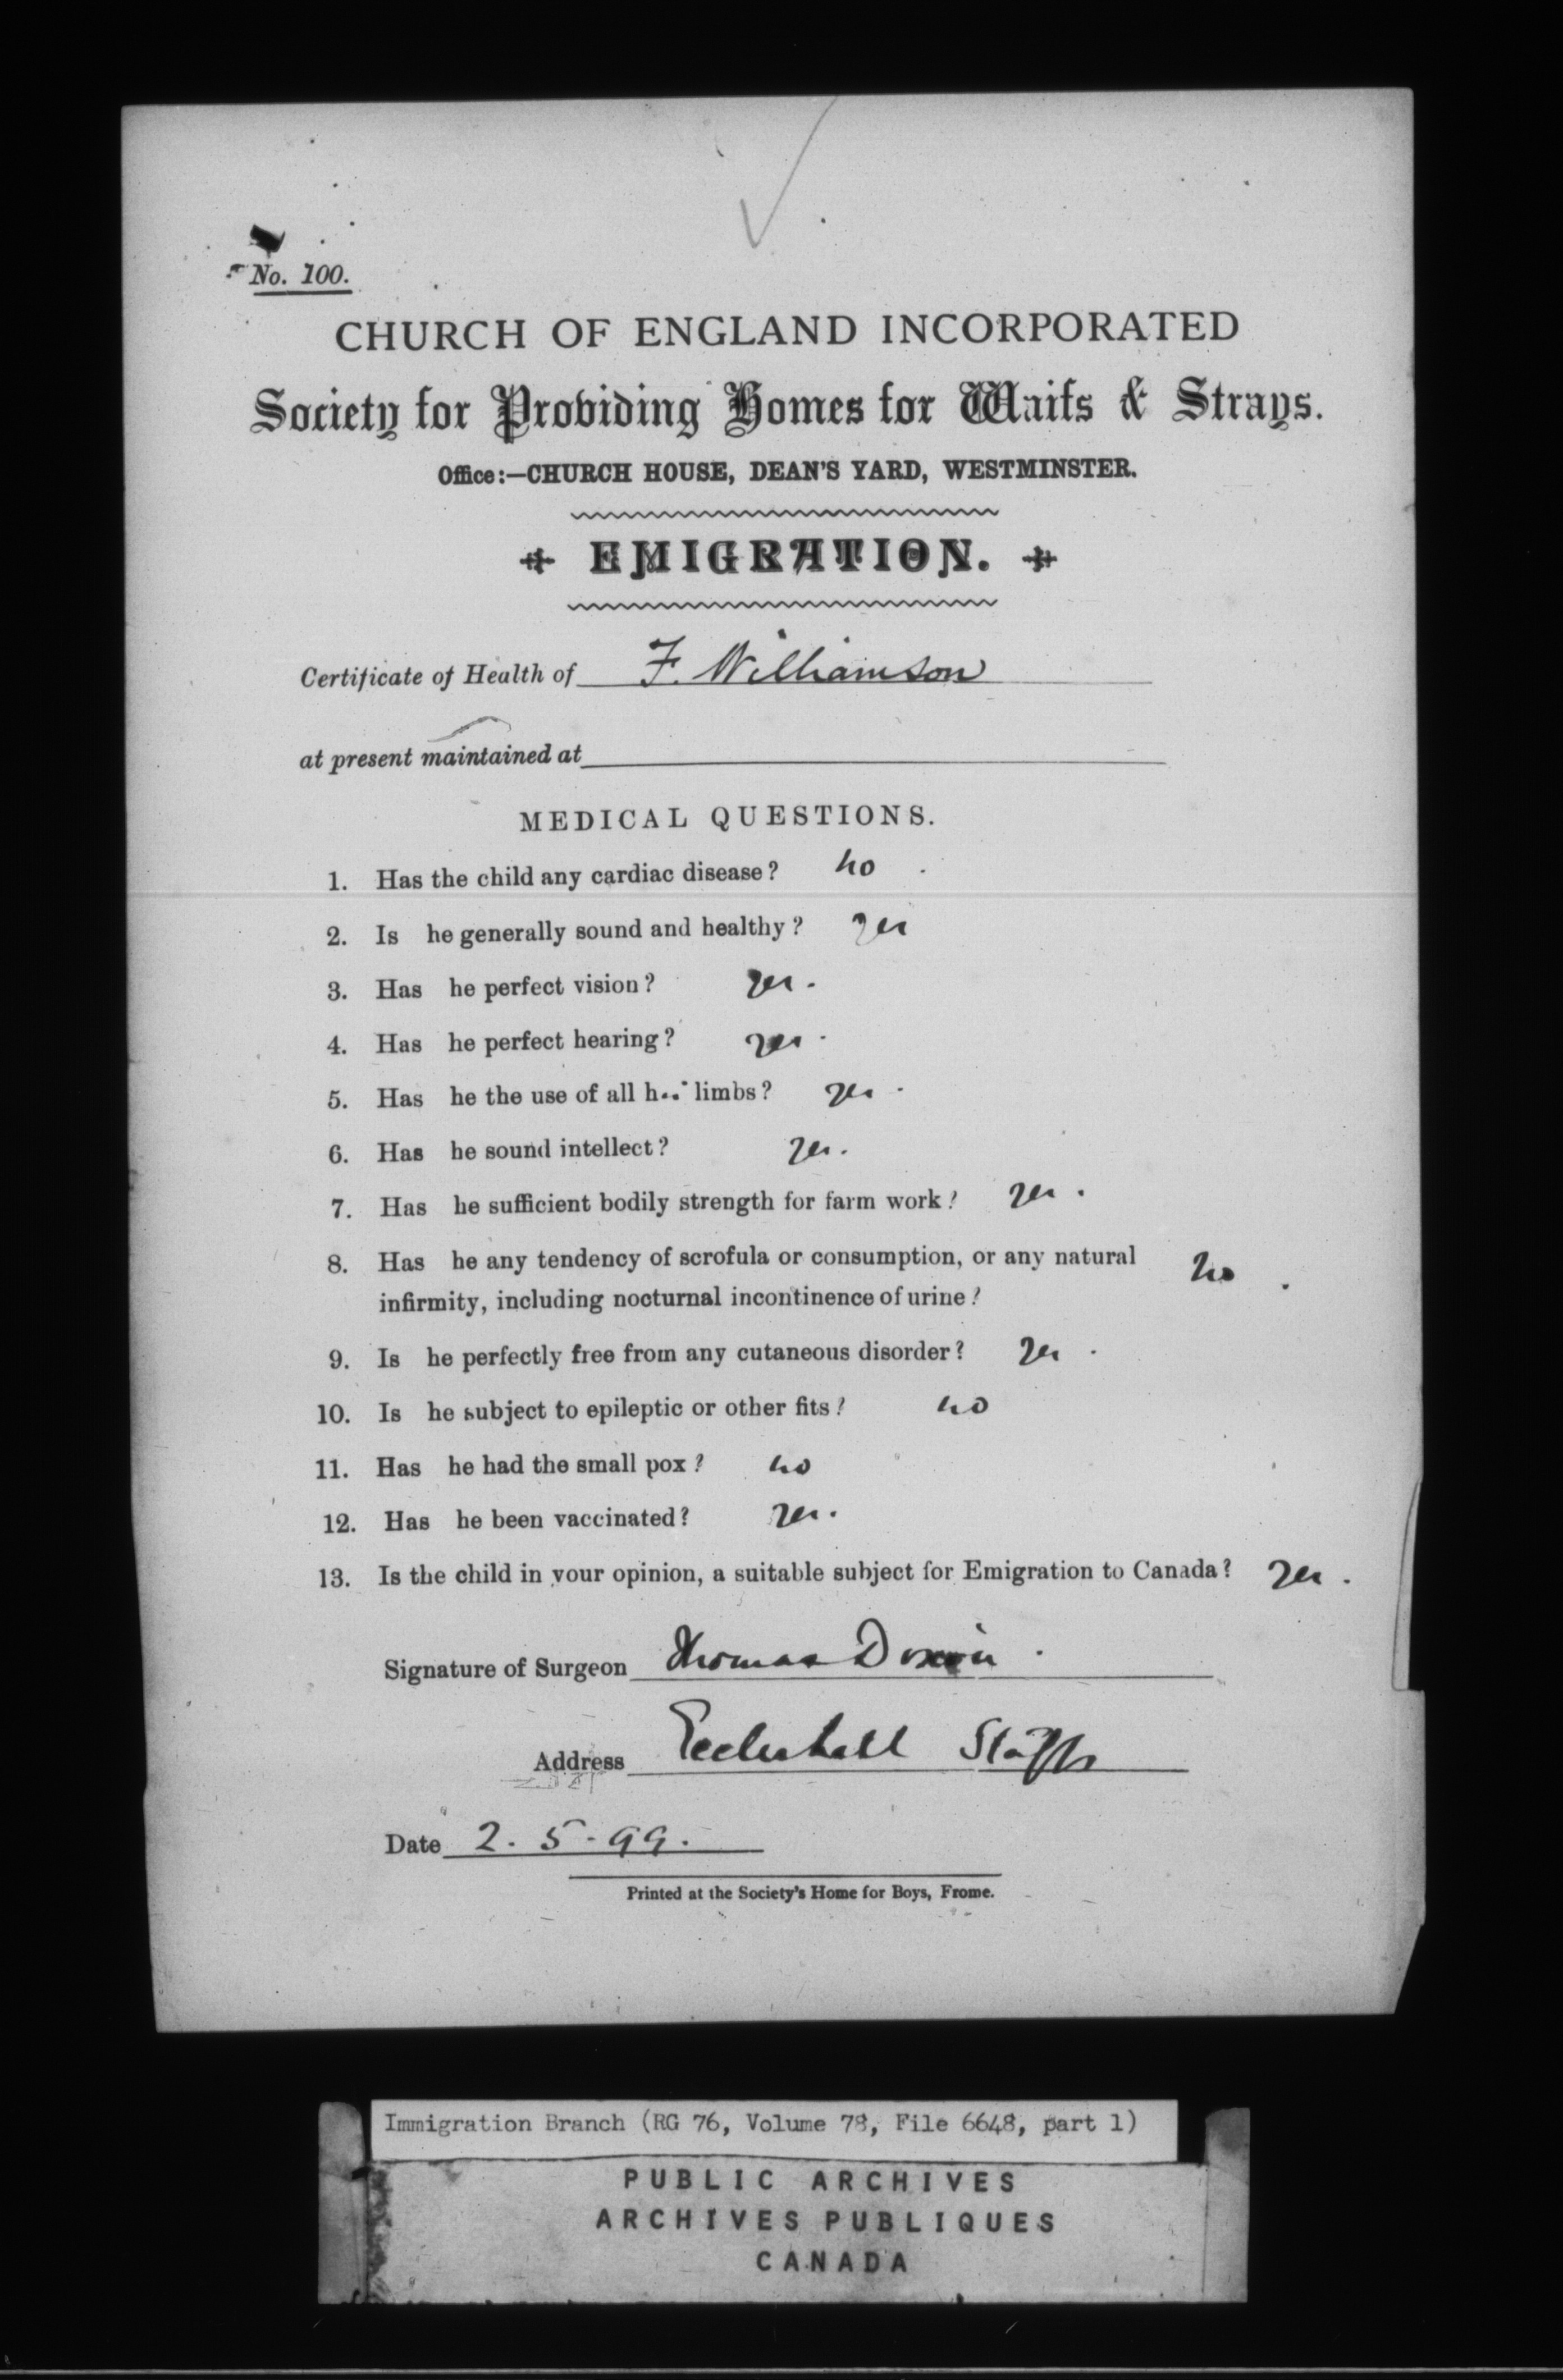 No. 100.
CHURCH OF ENGLAND INCORPORATED
Society for Providing Homes for Waifs & Strays.
Office:—CHURCH HOUSE, DEAN'S YARD, WESTMINSTER.
EMIGRATION.
Certificate of Health of F. Williamson
at present maintained at
MEDICAL QUESTIONS.
1. Has the child any cardiac disease? no
2. Is he generally sound and healthy? yes
3. Has he perfect vision? yes.
4. Has he perfect hearing? yes.
5. Has he the use of all limbs? yes.
6. Has he sound intellect? yes.
7. Has he sufficient bodily strength for farm work? yes.
8. Has he any tendency of scrofula or consumption, or any natural no.
infirmity, including nocturnal incontinence of urine?
9. Is he perfectly free from any cutaneous disorder? yes.
10. Is he subject to epileptic or other fits? no
11. Has he had the small pox? no
12. Has he been vaccinated? yes.
13. Is the child in your opinion, a suitable subject for Emigration to Canada? yes.
Signature of Surgeon Thomas
Address Eccleshall Staffs
Date 2. 5. 99.
Printed at the Society's Home for Boys, Frome.
Immigration Branch (RG 76, Volume 78, File 6648, part 1)
PUBLIC ARCHIVES
ARCHIVES PUBLIQUES
CANADA